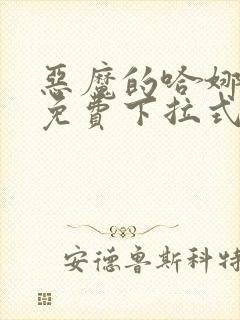 惡魔的哈娜
免費下拉式
安德魯斯科特